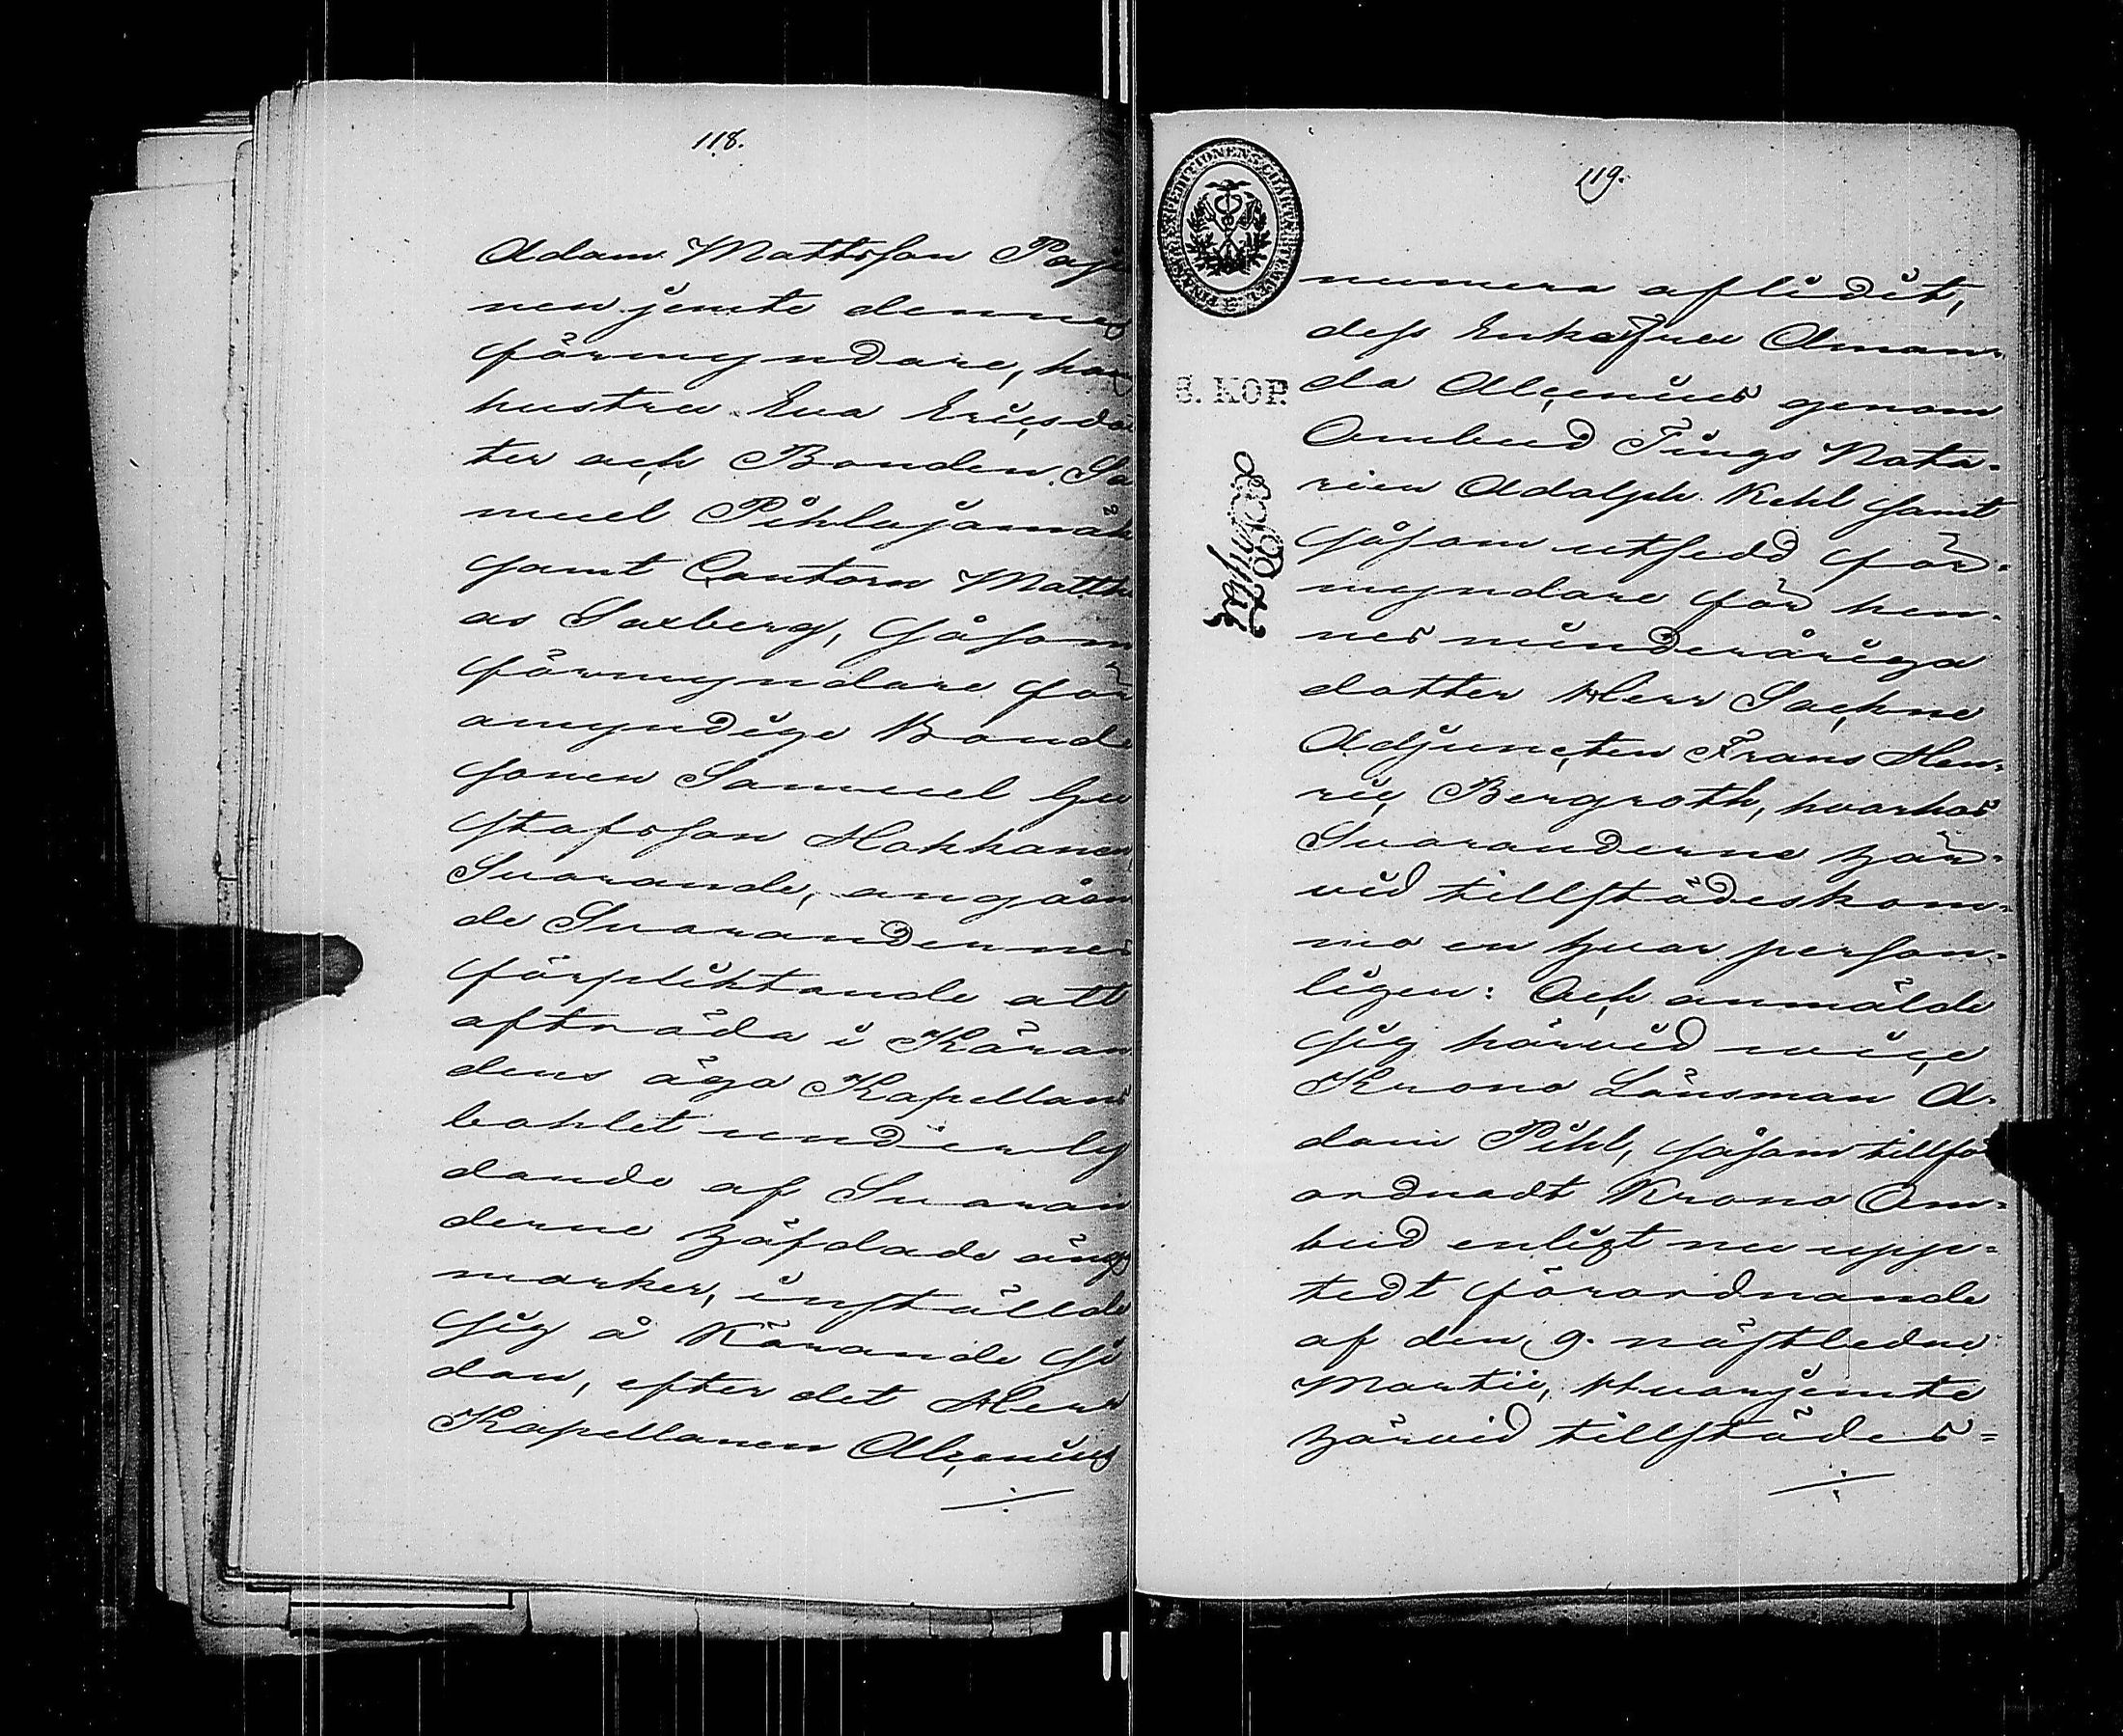 118.
Adam Mattsson Paju
nen jemte dennes
förmyndare, hans
hustru Eva Ericsdot
ter och Bonden Sa
muel Pihlajamäki
samt Cantorn Matthi
as Saxberg, såsom
förmyndare för
omyndige Bonde
sonen Samuel Gu
stafsson Hokkanen,
Svarande, angåen
de Svarandernes
förpliktande att
afträda i Käran
dens ägo Kapellans
bohlet underly
dande af Svaran
derne häfdade ängs
marker, inställde
sig å Kärande si
dan, efter det Herr
Kapellanen Alcenius
./.
119.
numera aflidit,
dess Enkefru Aman-
da Alcenius genom
Ombud Tings Nota-
rien Adolph Kehl samt
såsom utsedd för-
myndare för hen-
nes minderåriga
dotter Herr Sockne
Adjuncten Frans Hen-
ric Bergroth, hvarhos
Svaranderne här-
vid tillstädeskom-
mo en hvar person-
ligen: Och anmälde
sig härvid vice
Krono Länsman A-
dam Pihl, såsom tillför
ordnadt Krono Om-
bud enligt nu upp-
tedt förordnande
af den 9. nästledne
Martii, Hvarjemte
härvid tillstädes-
./.
FINANS EXPEDITIONENS CHARTÆ STÄMPEL
8. KOP.